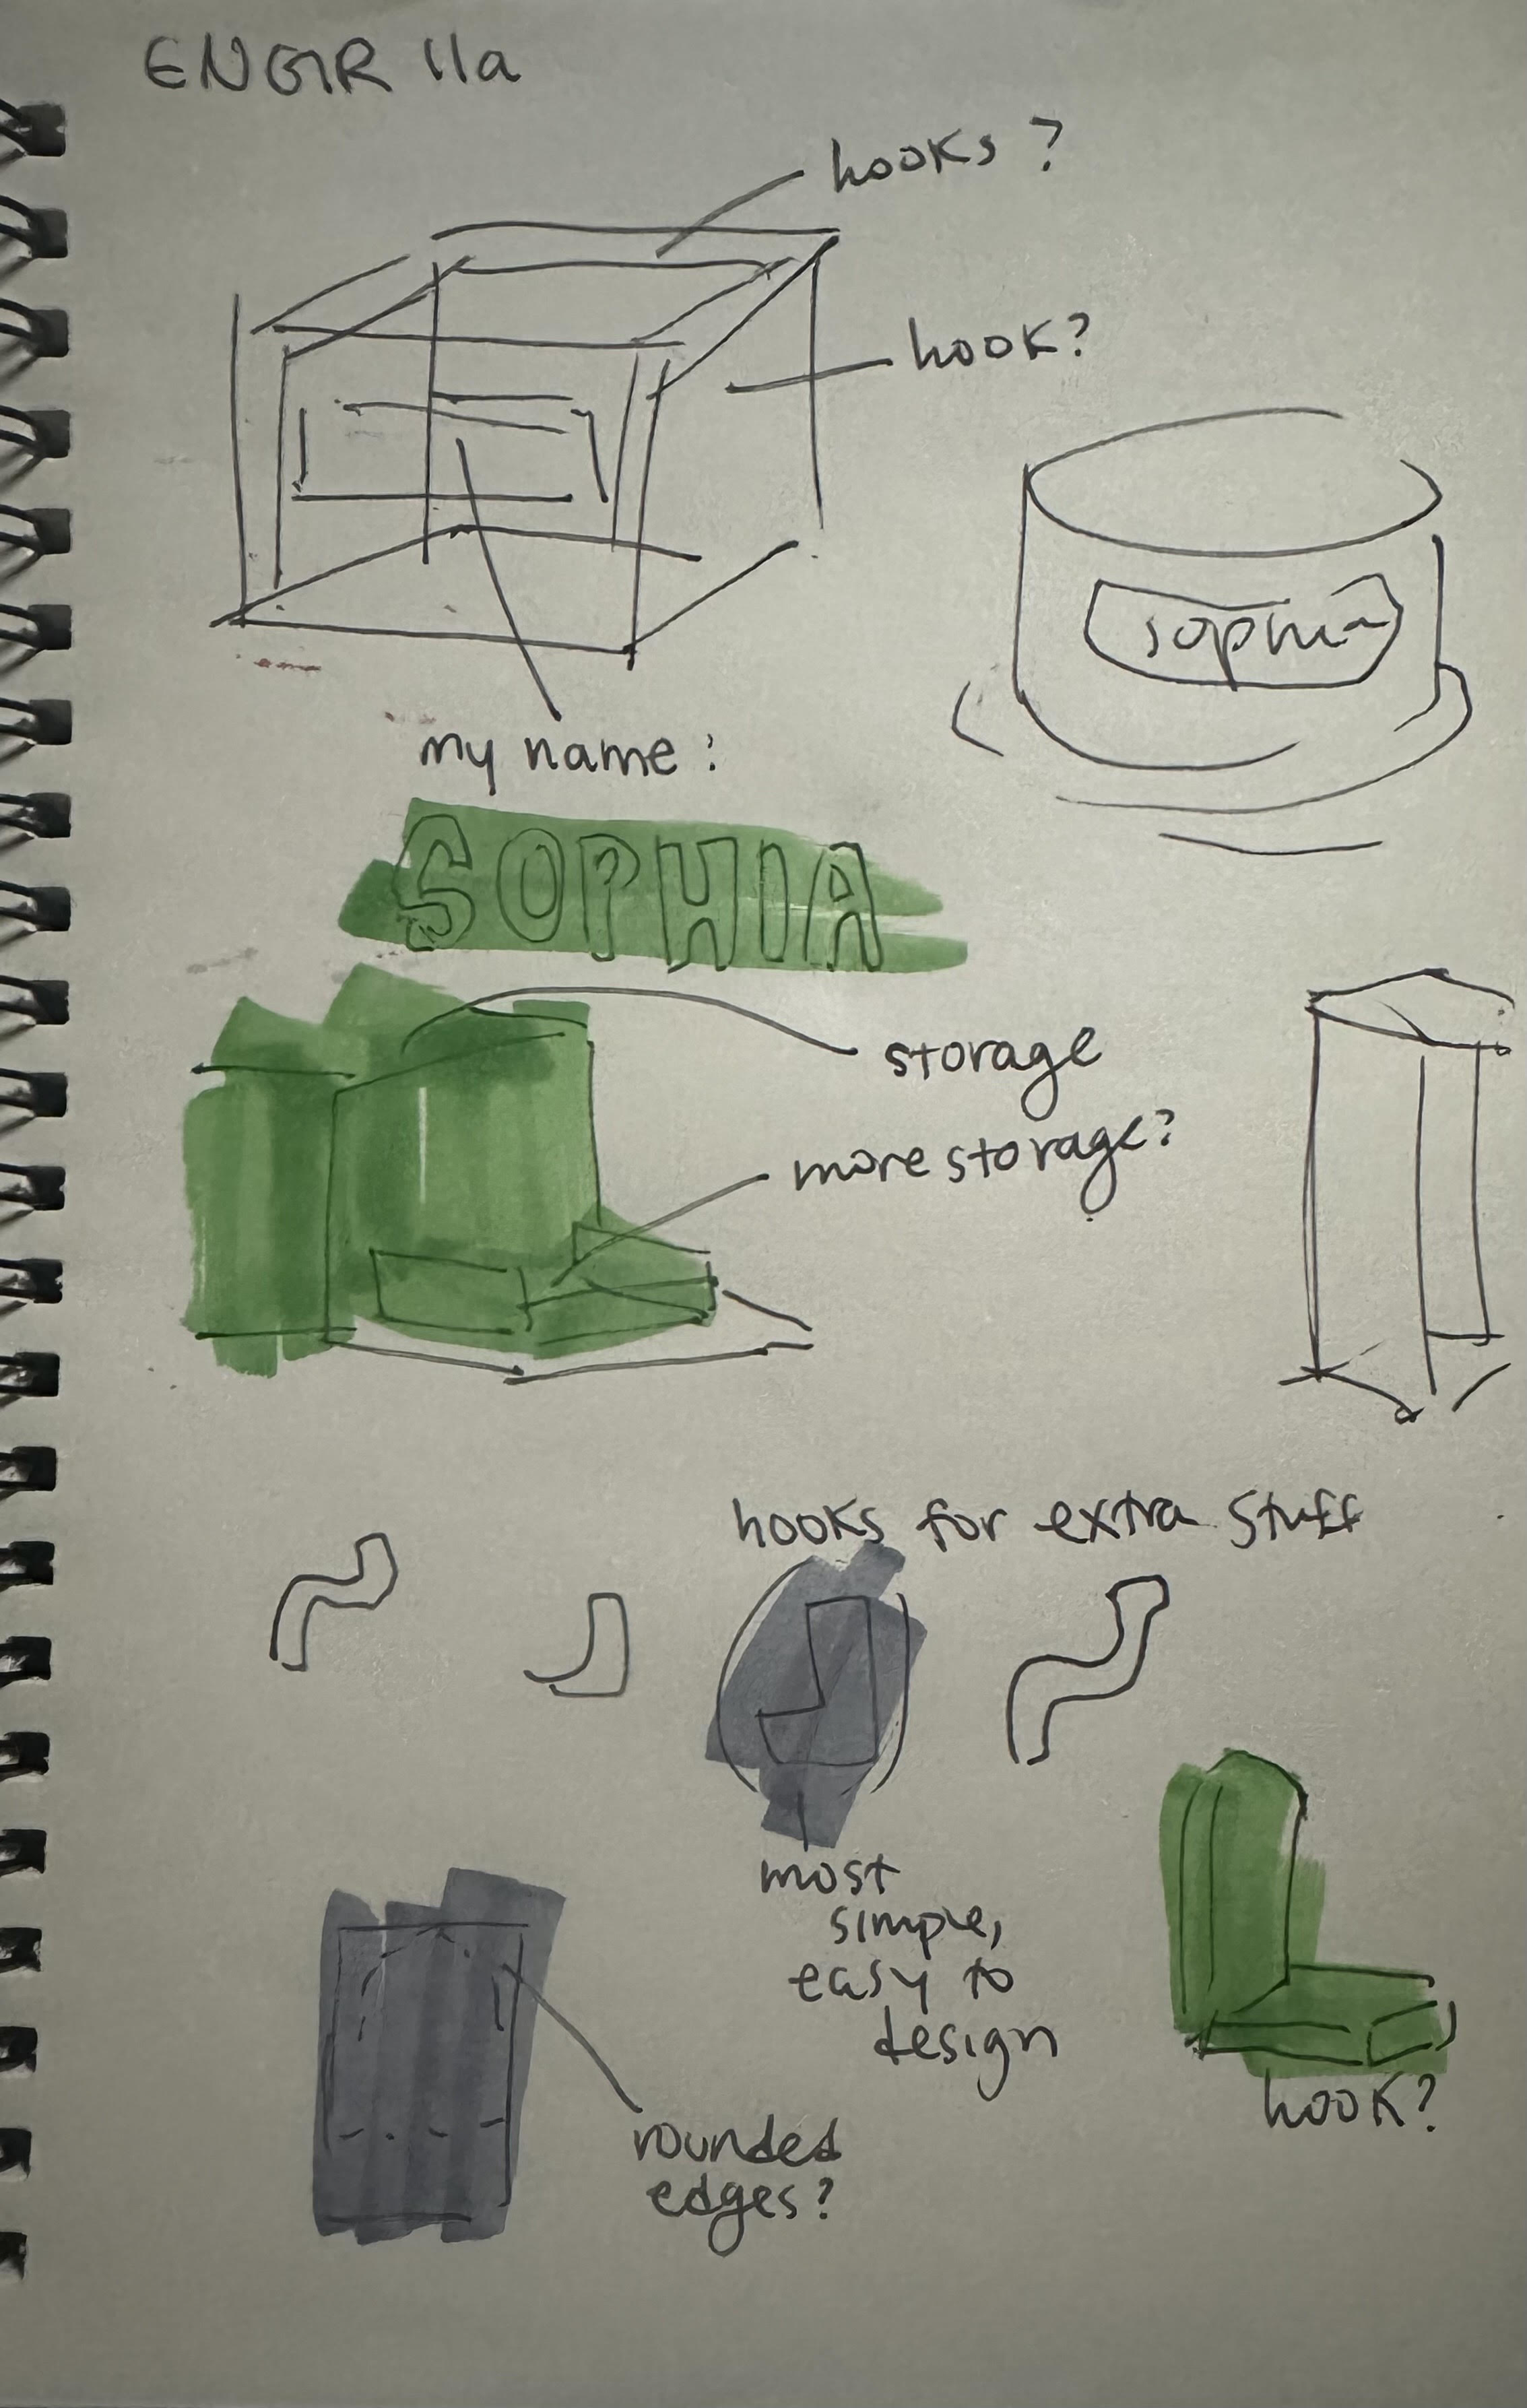 ENGR 11a
hooks?
hook?
sophia
my name:
SOPHIA
storage
more storage?
hooks for extra stuff
most
simple,
easy to
design
hook?
rounded
edges?